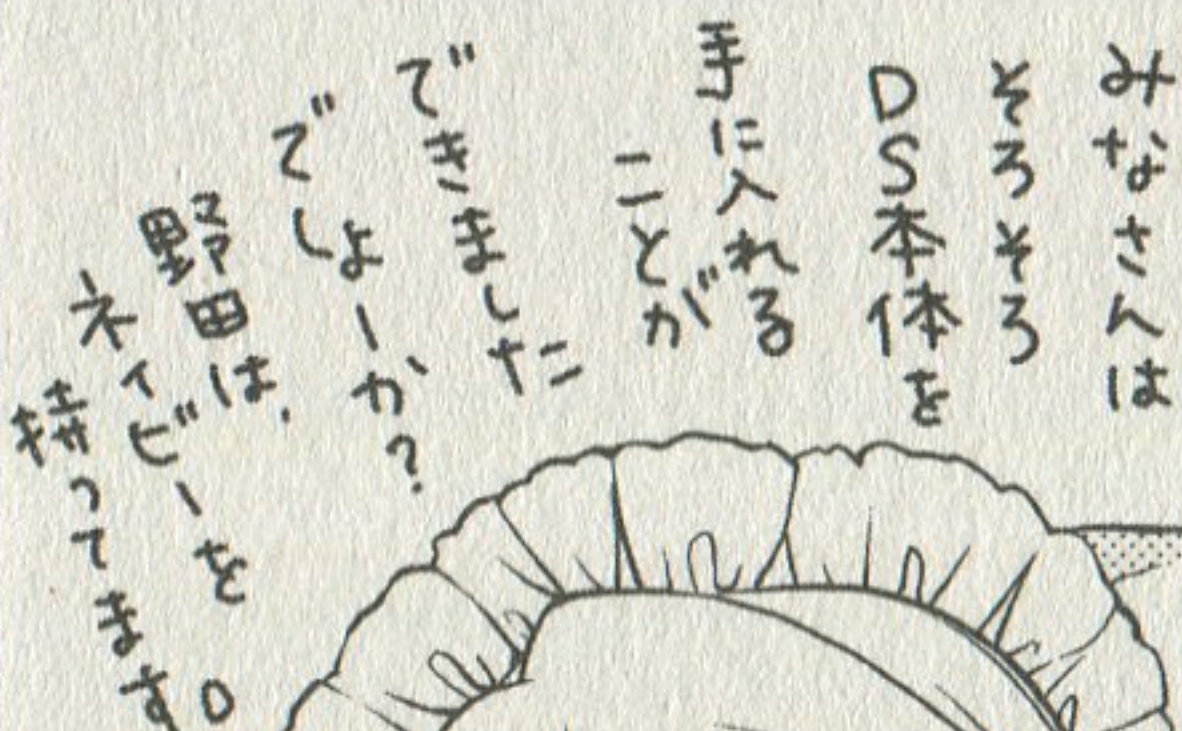 みなさんは
そろそろ
DS本体を
手に入れる
ことが
できました
でしょーか?
野田は、
ネイビーを
持ってます。